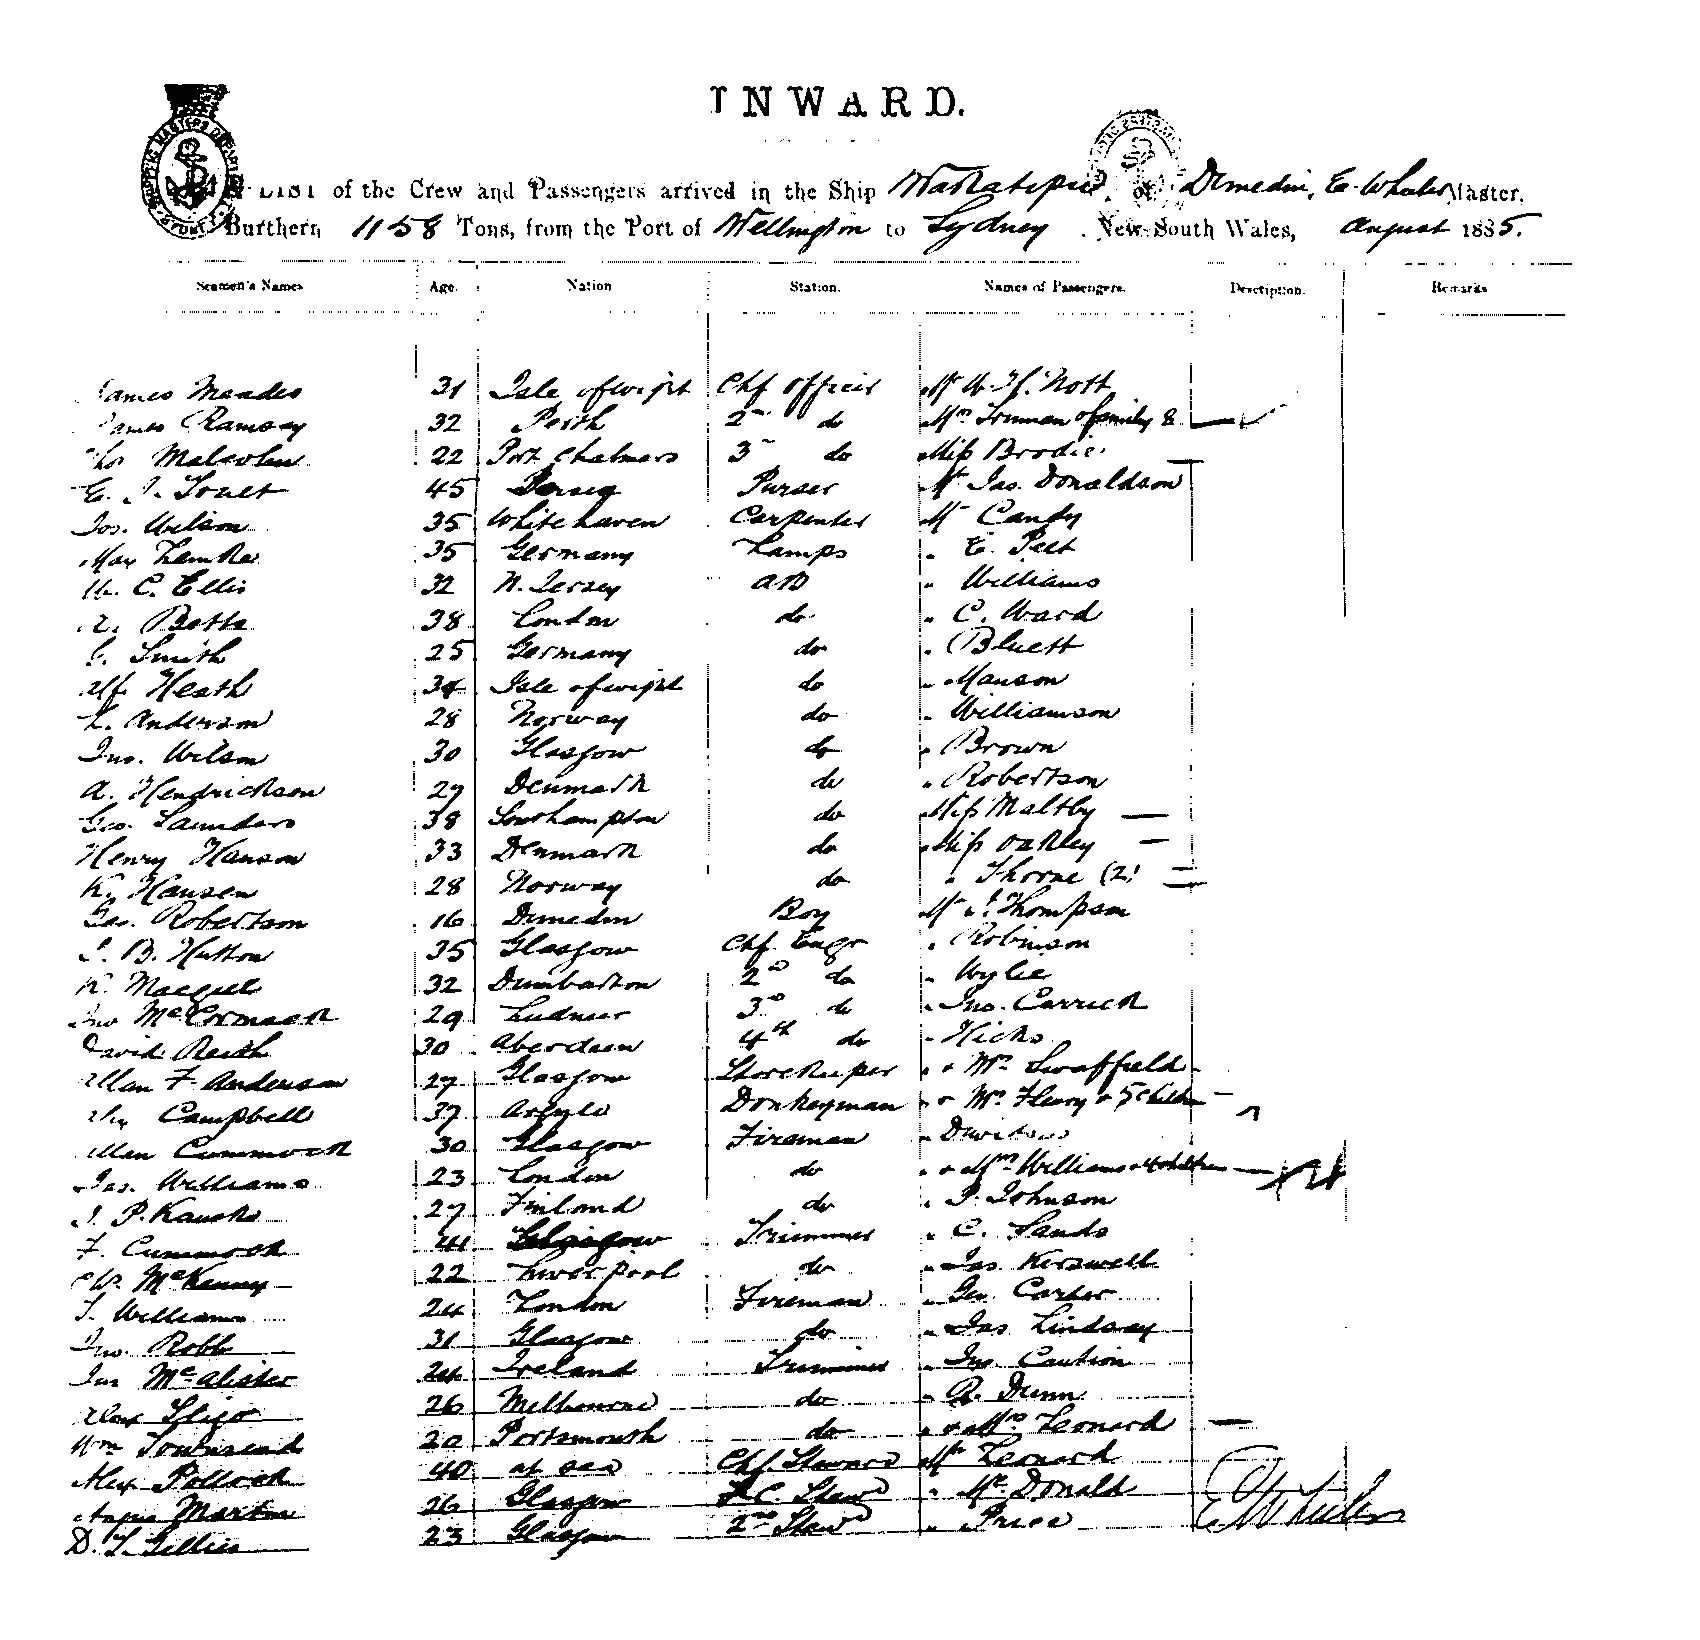 INWARD.
LIST of the Crew and Passengers arrived in the Ship Wakatipu of Dunedin, E. Wheeler Master,
Burthern 1158 Tons, from the Port of Wellington to Sydney New South Wales, August 1885.
Seamen's Names Age. Nation Station. Names of Passengers. Description. Remarks
James Meades 31 Isle of wight Chf officer Mr W. H. Nott
James Ramsay 32 Perth 2nd do Mrs Truman & family 8
Thos Malcolm 22 Port Chalmers 3 do Miss Brodie
E. J. 45 Purser Mr Jas. Donaldson
Jos. Wilson 35 White haven Carpenter Mr Candy
Max Lemke 35 Germany Lamps " E. Peet
W. C. Ellis 32 N. Jersey AB " Williams
Betts 38 London do " C. Ward
Smith 25 Germany do " Bluett
Alf Heath 34 Isle of wight do " Manson
L. Anderson 28 Norway do " Williamson
Jno. Wilson 30 Glasgow do " Brown
A. Hendrickson 27 Denmark do " Robertson
Geo. Saunders 38 Southampton do Miss Maltby
Henry Hanson 33 Denmark do Miss Oakley
K. Hansen 28 Norway do " Thorne (2)
Geo. Robertson 16 Dunedin Boy Mr J. Thompson
J. B. Hutton 35 Glasgow Chf. Engr " Robinson
K. Macquee 32 Dumbarton 2nd do " Wylie
Jno McCormack 29 3rd do " Jno. Carrick
David Reith 30 Aberdeen 4th do " Hicks
Allan F Anderson 27 Glasgow Storekeeper " & Mrs Swaffield
Alex Campbell 37 Argyle Donkeyman " & Mrs Fleury & 5 children
Allan Cummock 30 Glasgow Fireman " Davidson
Jas. Williams 23 London do " & Mrs Williams & 4 children
J. P. Kausko 27 Finland do " P. Johnson
F. Cummock 41 Glasgow Trimmer " C. Sands
McKenny 22 Liverpool do " Jas Kerswell
T. Williams 24 London Fireman " Geo. Carter
Jno. Robb 31 Glasgow do " Jas Lindsay
Jno McAlister 24 Ireland Trimmer " Jno. Caution
Alex Sligo 26 Melbourne do " R. Dunn
Wm Townsend 20 Portsmouth do " & Mrs Leonard
Alex Pollock 40 at sea Chf. Steward Mr Leonard
Angus Martin 26 Glasgow F. C. Stewd " McDonald
D. T. Gillies 23 Glasgow 2nd Stewd " Price
E Wheeler